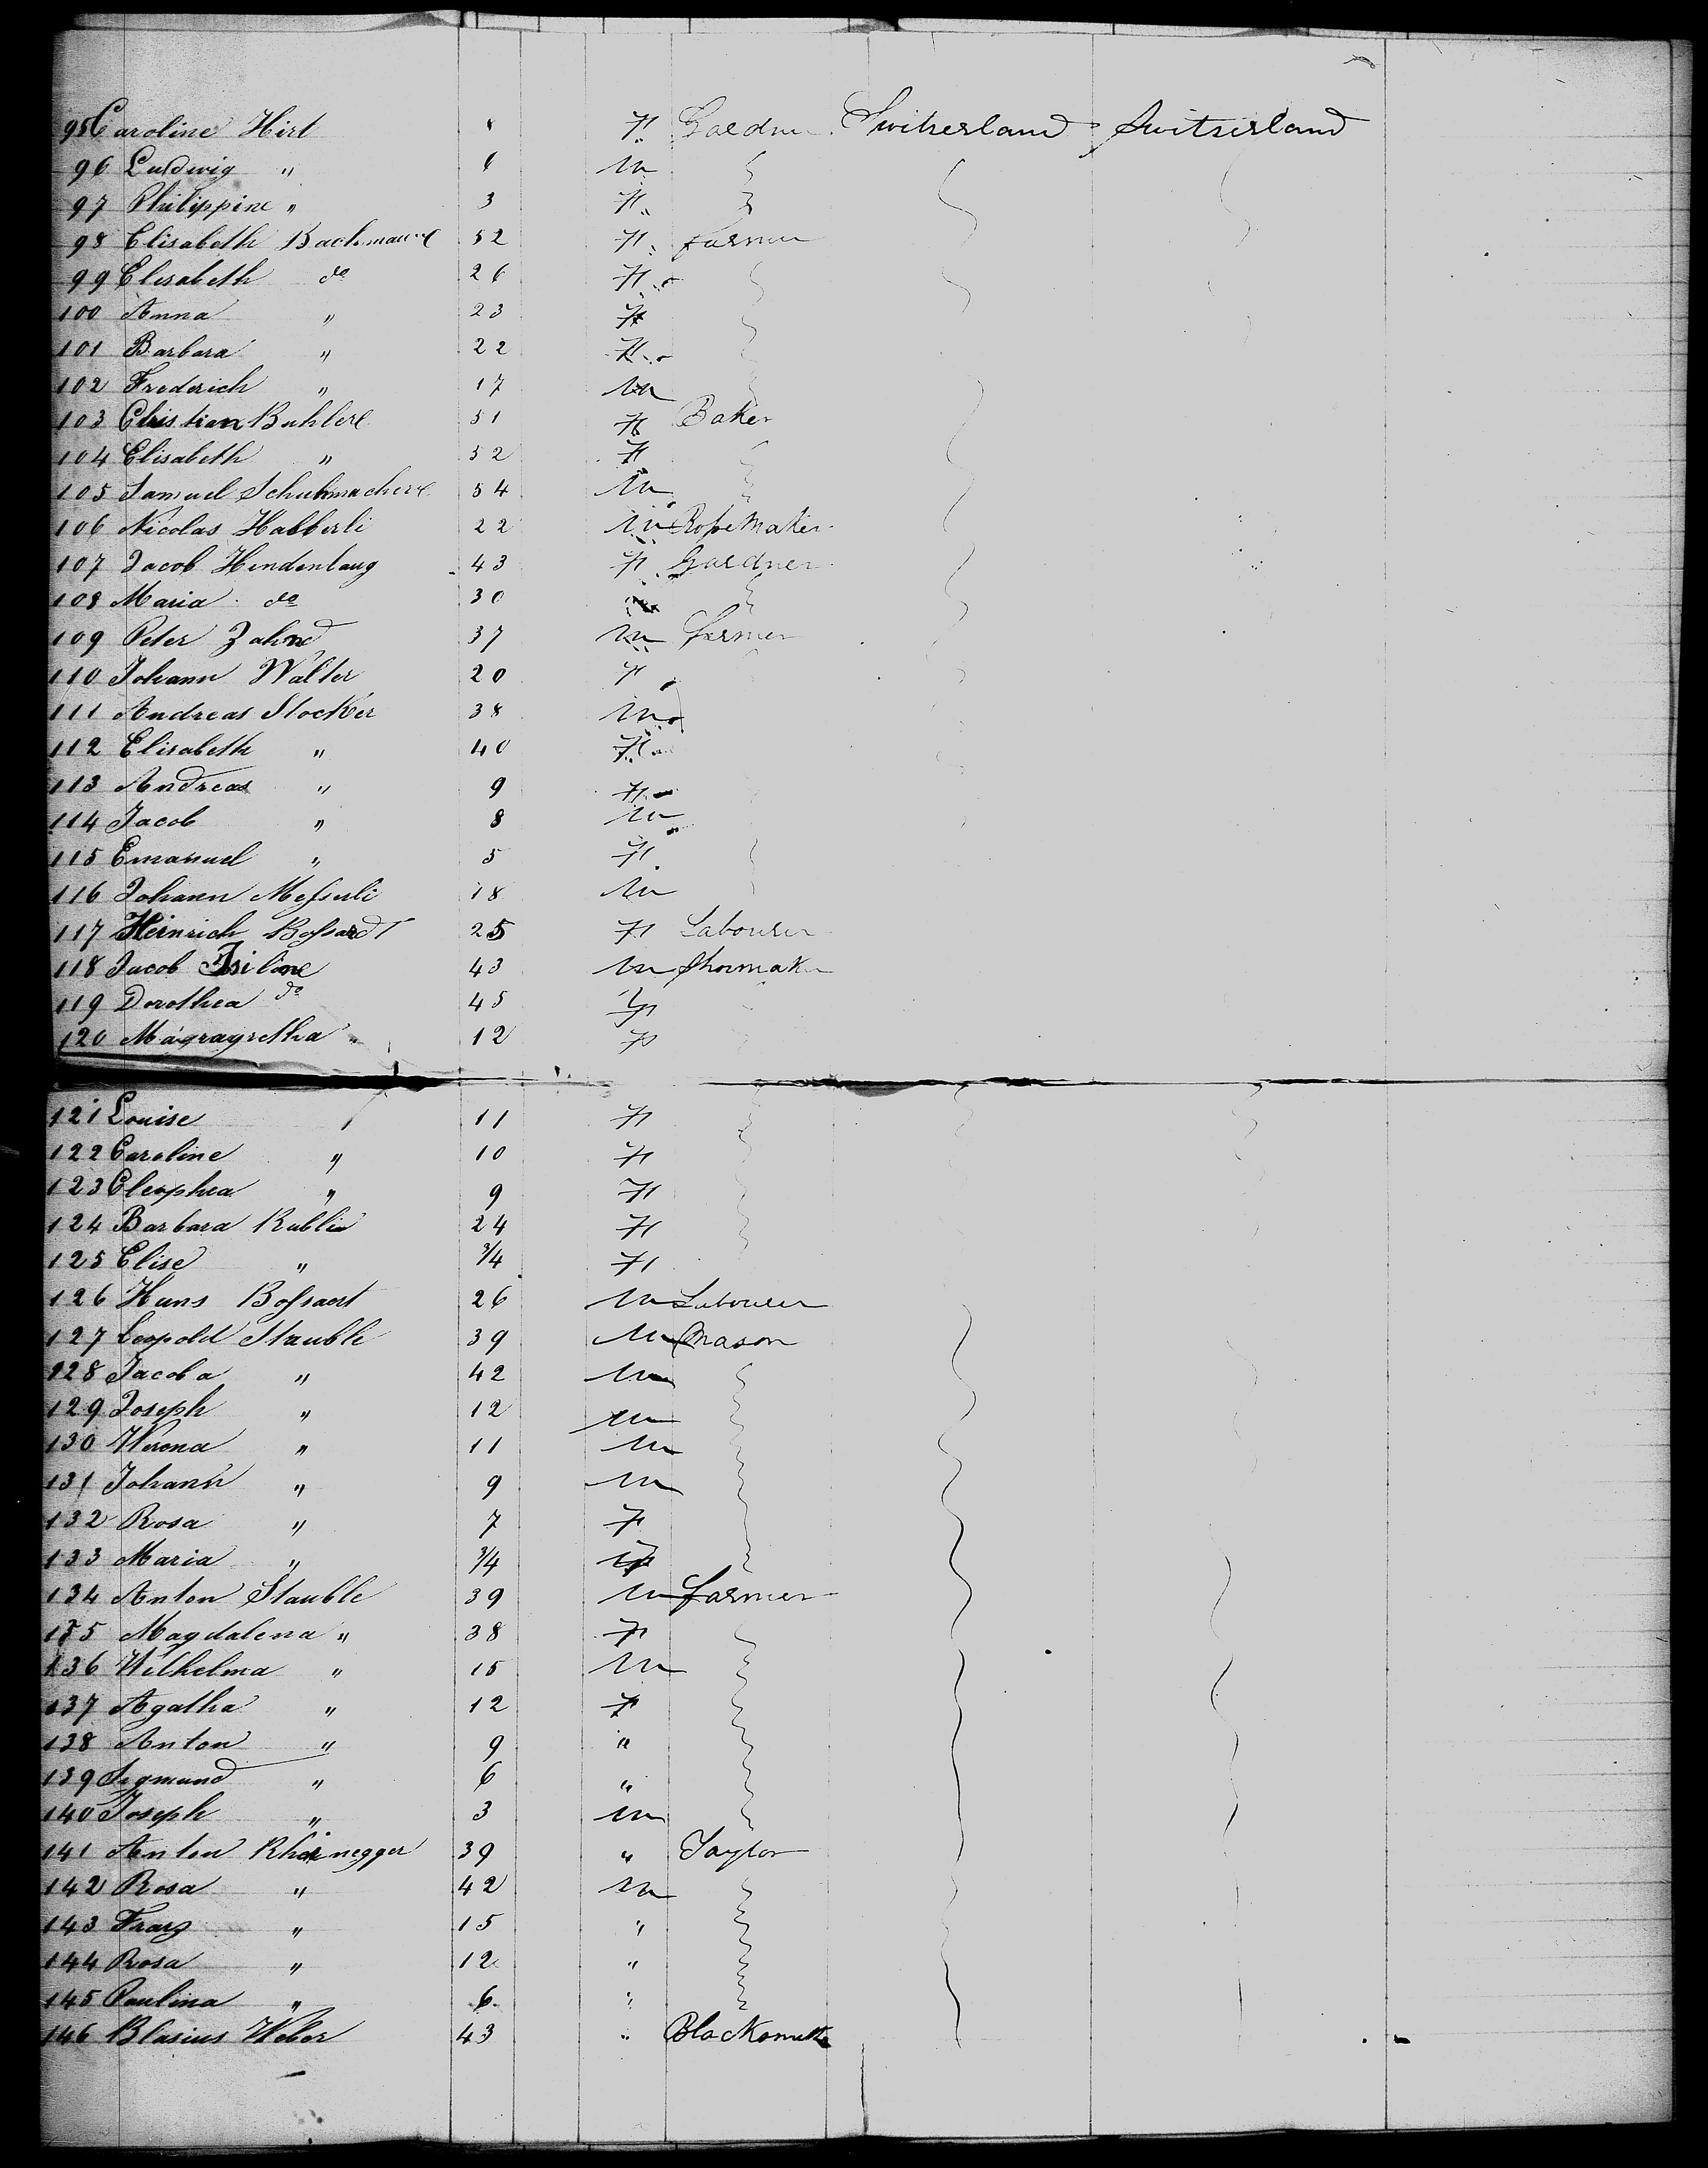 95 Caroline Hirt 8 F Gardner Switzerland Switserland
96 Ludwig " 6 m
97 Philippine " 3 F
98 Elisabeth Bachmann 52 F farmer
99 Elisabeth do 26 F
100 Anna " 23 F
101 Barbara " 22 F
102 Frederich " 17 m
103 Christian Buhler 51 F Baker
104 Elisabeth " 52 F
105 Samuel Schuhmacher 54 m
106 Nicolas Habberli 22 m RopeMaker
107 Jacob Hindenlang 43 F Gardner
108 Maria do 30
109 Peter Zahnd 37 m farmer
110 Johann Walter 20 F
111 Andreas Stocker 38 m
112 Elisabeth " 40 F
113 Andreas " 9 F
114 Jacob " 8 m
115 Emanuel " 5 F
116 Johann Messerli 18 m
117 Heinrich Bossardt 25 F Labourer
118 Jacob Isiline 43 m Shoemaker
119 Dorothea do 45 F
120 Magragretha " 12 F
121 Louise " 11 F
122 Caroline " 10 F
123 Cleophea " 9 F
124 Barbara Kublin 24 F
125 Elise " 3/4 F
126 Hans Bossaert 26 m Labourer
127 Leopold Stauble 39 m Mason
128 Jacoba " 42 m
129 Joseph " 12 m
130 Werona " 11 m
131 Johann " 9 m
132 Rosa " 7 F
133 Maria " 3/4 F
134 Anton Stauble 39 m farmer
135 Magdalena " 38 F
136 Wilhelma " 15 m
137 Agatha " 12 F
138 Anton " 9 "
139 Sigmund " 6 "
140 Joseph " 3 m
141 Anton Rheinegger 39 " Taylor
142 Rosa " 42 m
143 Franz " 15 "
144 Rosa " 12 "
145 Paulina " 6 "
146 Blasius Weber 43 " Blacksmith